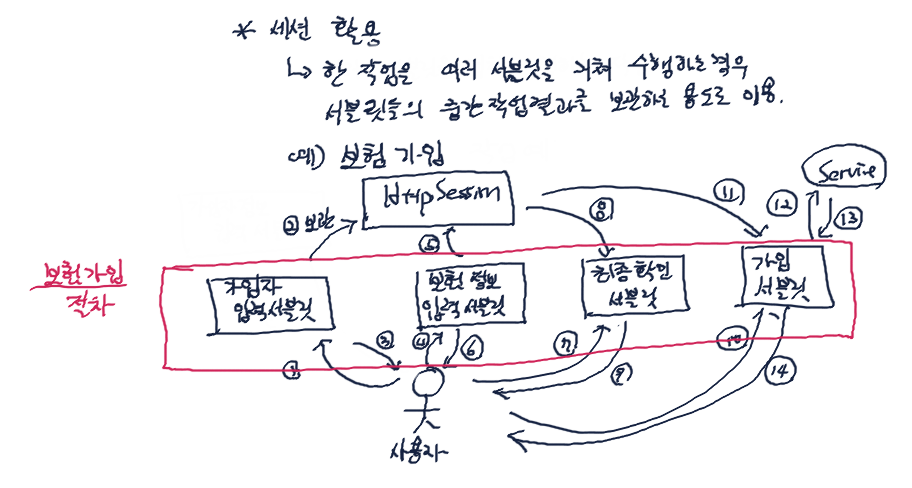 * 세션 활용
↳ 한 작업을 여러 서블릿을 거쳐 수행하는 경우
서블릿들의 중간 작업결과를 보관하는 용도로 이용.
예) 보험 가입
Service
HttpSession
⑪
⑫
⑬
② 보관
⑤
⑧
보험가입
절차
가입자
입력 서블릿
보험 정보
입력 서블릿
최종 확인
서블릿
가입
서블릿
①
③
④
⑥
⑦
⑨
⑩
⑭
사용자